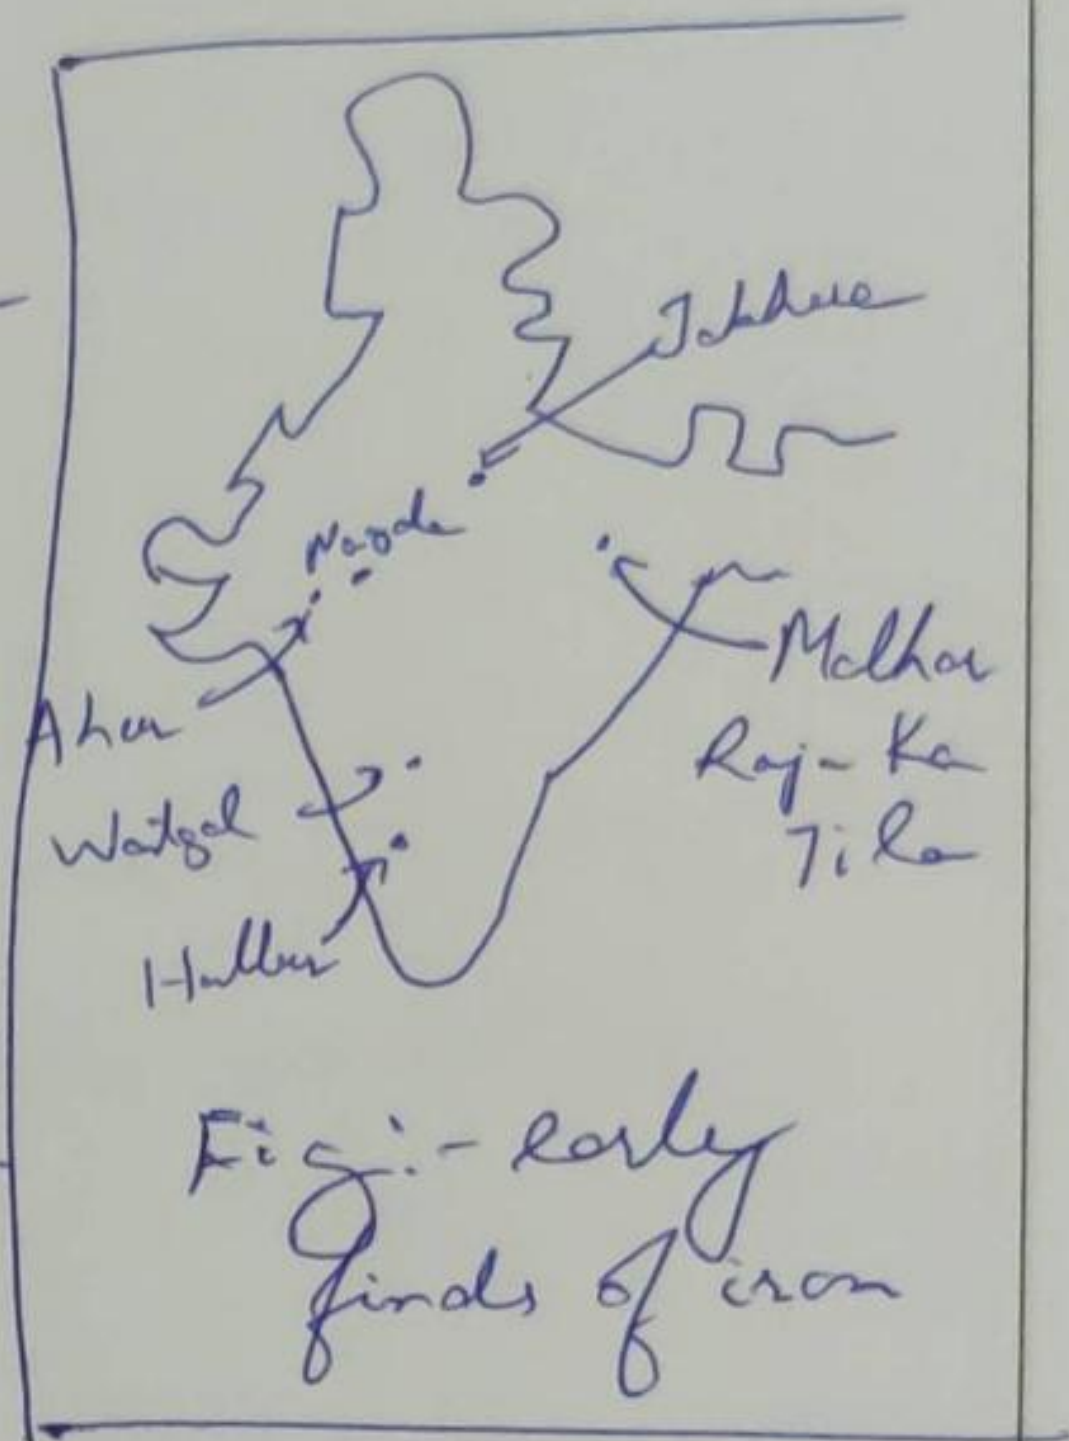 Jakhera
Nagda
Malhar
Raj-Ka
Tila
Ahar
Watgal
Hallur
Fig:- early
finds of iron